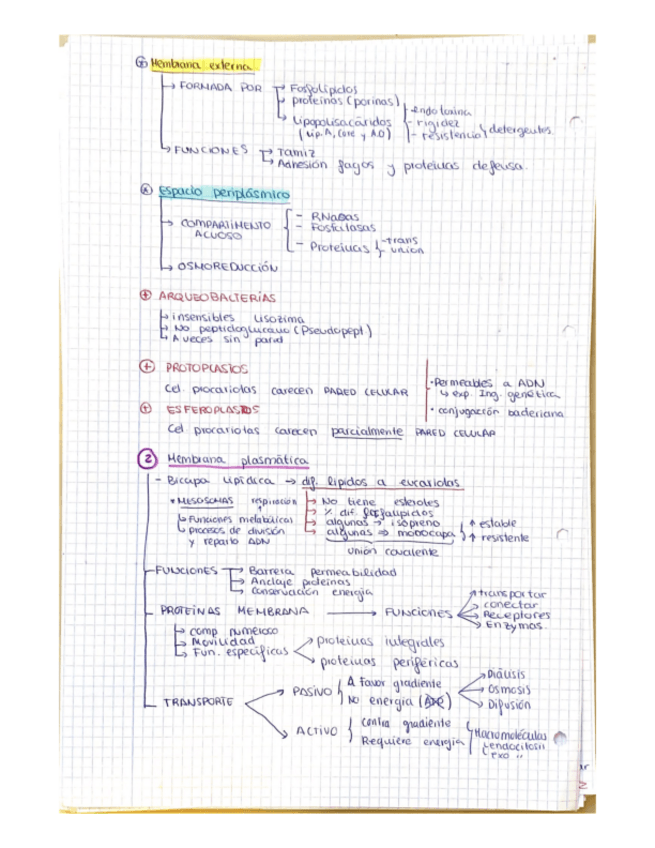 ⊕ Membrana externa
→ FORMADA POR → Fosfolípidos
→ proteínas (porinas)
→ Lipopolisacáridos { - endotoxina
(Lip. A, Core y A.O) - rigidez
- resistencia y detergentes.
→ FUNCIONES → Tamiz
→ Adhesión fagos y proteínas defensa.
⊕ Espacio periplásmico
→ COMPARTIMENTO ACUOSO { - RNAasas
- Fosfatasas
- Proteínas { - trans
- unión
→ OSMOREDUCCIÓN
⊕ ARQUEOBACTERIAS
→ insensibles lisozima
→ No peptidoglucano (Pseudopept)
→ A veces sin pared
⊕ PROTOPLASTOS
Cel. procariotas carecen PARED CELULAR
⊕ ESFEROPLASTOS
Cel procariotas carecen parcialmente PARED CELULAR
· Permeables a ADN
↳ exp. Ing. genética
· conjugación bacteriana
② Membrana plasmática
- Bicapa lipídica → dif. lípidos a eucariotas
* MESOSOMAS respiración
↳ Funciones metabólicas
↳ procesos de división
y reparto ADN
→ No tiene esteroles
→ % dif. fosfolípidos
→ algunas → isopreno
→ algunas ⇒ monocapa
↑ estable
↑ resistente
unión covalente
- FUNCIONES → Barrera permeabilidad
→ Anclaje proteínas
→ Conservación energía
- PROTEÍNAS MEMBRANA → FUNCIONES → transportar
→ conectar
→ Receptores
→ Enzymas.
→ comp numeroso
→ Movilidad
→ Fun. específicas → proteínas integrales
→ proteínas periféricas
- TRANSPORTE → PASIVO { A favor gradiente
No energía ( )
→ Diálisis
→ Osmosis
→ Difusión
→ ACTIVO { contra gradiente
Requiere energía
Macromoléculas
↳ endocitosis
↳ exo "